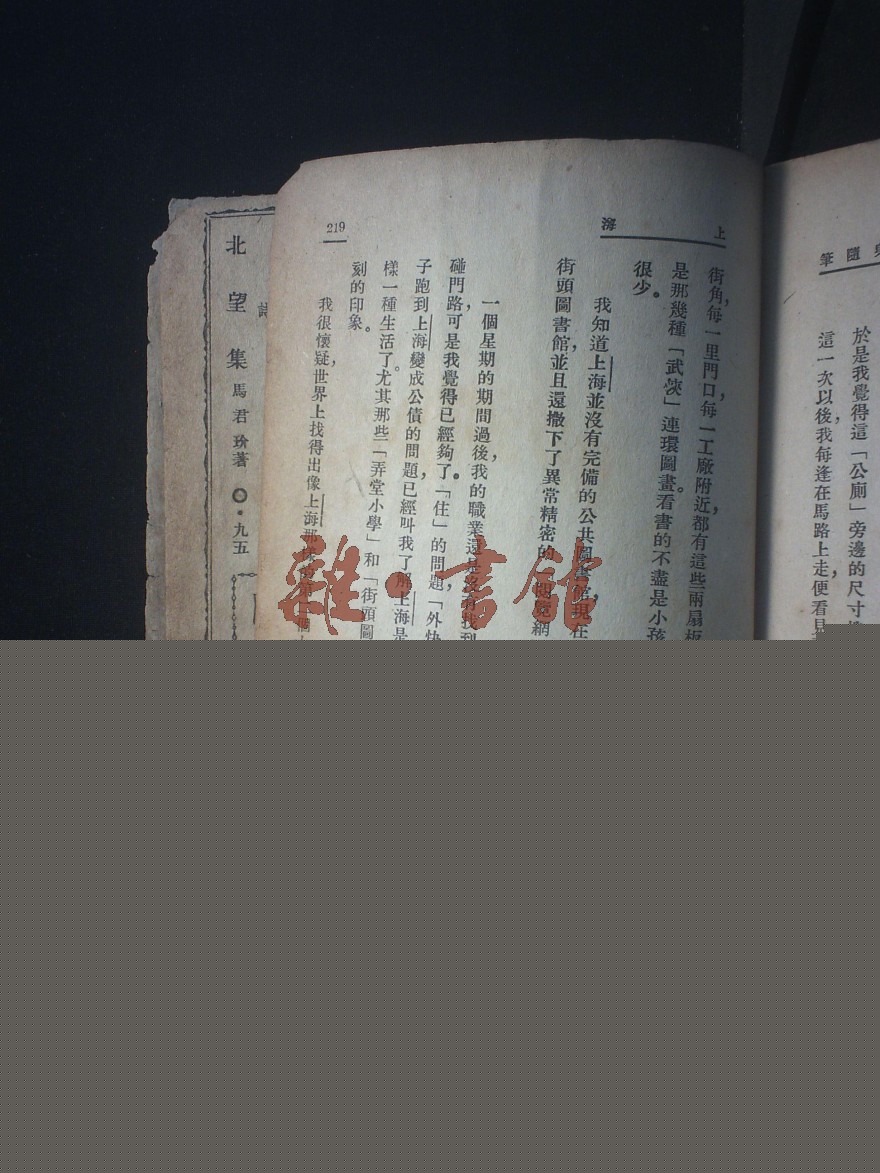 筆隨
於是我覺得這「公廁」旁邊的尺寸
這一次以後,我每逢在馬路上走,便看見
上海
街角,每一里門口,每一工廠附近,都有這些兩扇板
是那幾種「武俠」連環圖畫。看書的不盡是小孩
很少。
我知道上海並沒有完備的公共圖書館,現在
街頭圖書館,並且還撒下了異常精密的
一個星期的期間過後,我的職業還是沒有找到
碰門路,可是我覺得已經夠了。「住」的問題,「外快
子跑到上海變成公債的問題,已經叫我了解上海是
樣一種生活了。尤其那些「弄堂小學」和「街頭圖
刻的印象。
我很懷疑,世界上找得出像上海那樣
219
北望集
馬君玠著
〇・九五
雜・書館